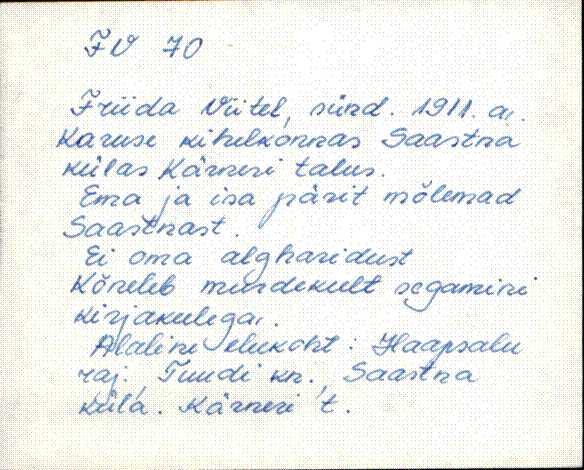 FV 70
Friida Viitel, sünd. 1911. a.
Karuse kihelkonnas Saastna
külas Kärneri talus.
Ema ja isa pärit mõlemad
Saastnast.
Ei oma algharidust
Kõneleb murdekult segamini
kirjakulega.
Alaline elukoht: Haapsalu
raj., Tuudi kn., Saastna
küla. Kärneri t.